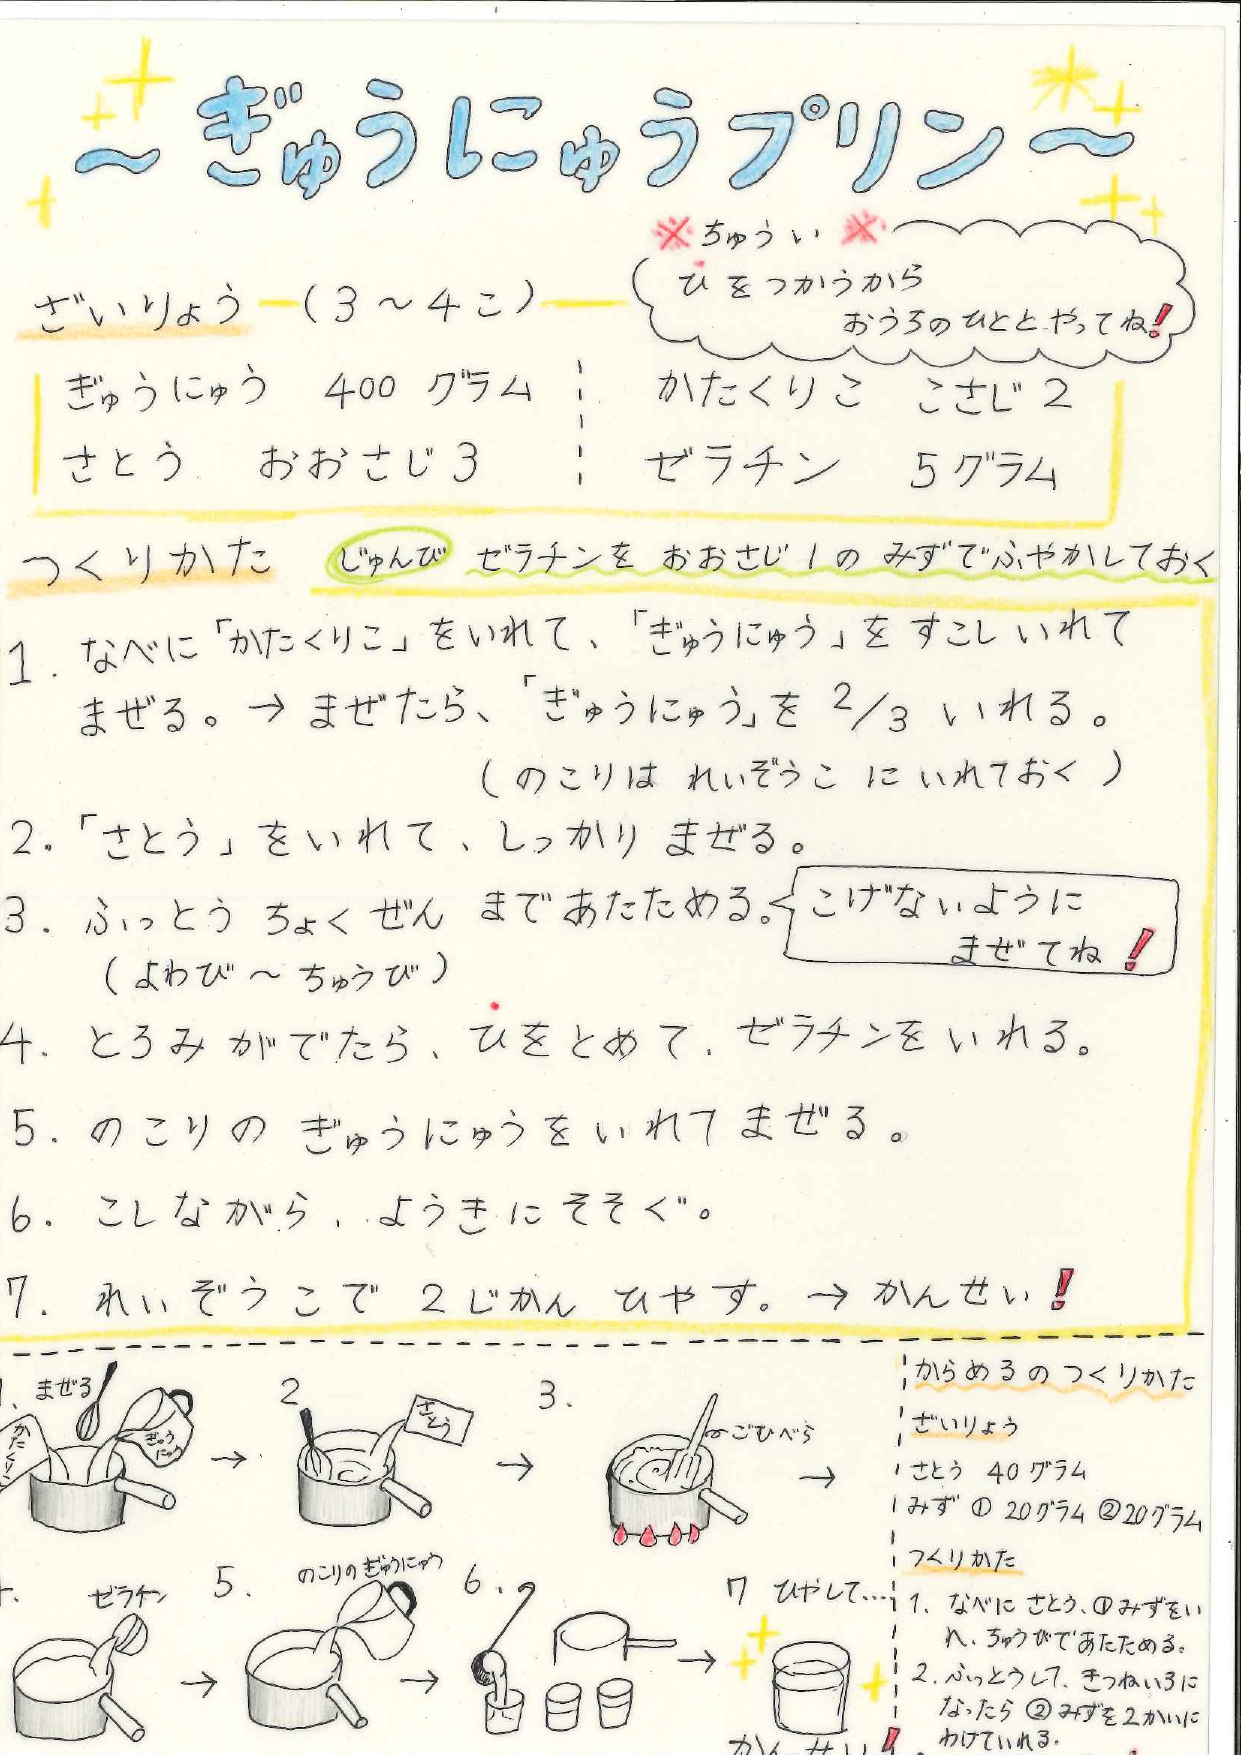 ～ぎゅうにゅうプリン～
※ちゅうい※
ひをつかうから
おうちのひととやってね!
ざいりょう ー(3～4こ)ー
ぎゅうにゅう 400 グラム
かたくりこ こさじ2
さとう おおさじ3
ゼラチン 5グラム
つくりかた じゅんび ゼラチンを おおさじ1の みずでふやかしておく
1. なべに「かたくりこ」をいれて、「ぎゅうにゅう」を すこし いれて
まぜる。→ まぜたら、「ぎゅうにゅう」を 2/3 いれる。
(のこりは れいぞうこ に いれておく)
2.「さとう」をいれて、しっかり まぜる。
3. ふっとう ちょくぜん まであたためる。
こげないように
まぜてね!
(よわび～ちゅうび)
4. とろみがでたら、ひをとめて、ゼラチンをいれる。
5. のこりの ぎゅうにゅうをいれてまぜる。
6. こしながら、ようきにそそぐ。
7. れいぞうこで 2じかん ひやす。→ かんせい!
1. まぜる
かたくりこ
ぎゅうにゅう
→
2
さとう
→
3.
ごむべら
→
ゼラチン
→
5.
のこりのぎゅうにゅう
→
6.
→
7 ひやして…
かんせい!
からめるのつくりかた
ざいりょう
さとう 40グラム
みず ① 20グラム ②20グラム
つくりかた
1. なべに さとう、①みずをい
れ、ちゅうびであたためる。
2. ふっとうして、きつねいろに
なったら ②みずを2かいに
わけていれる。